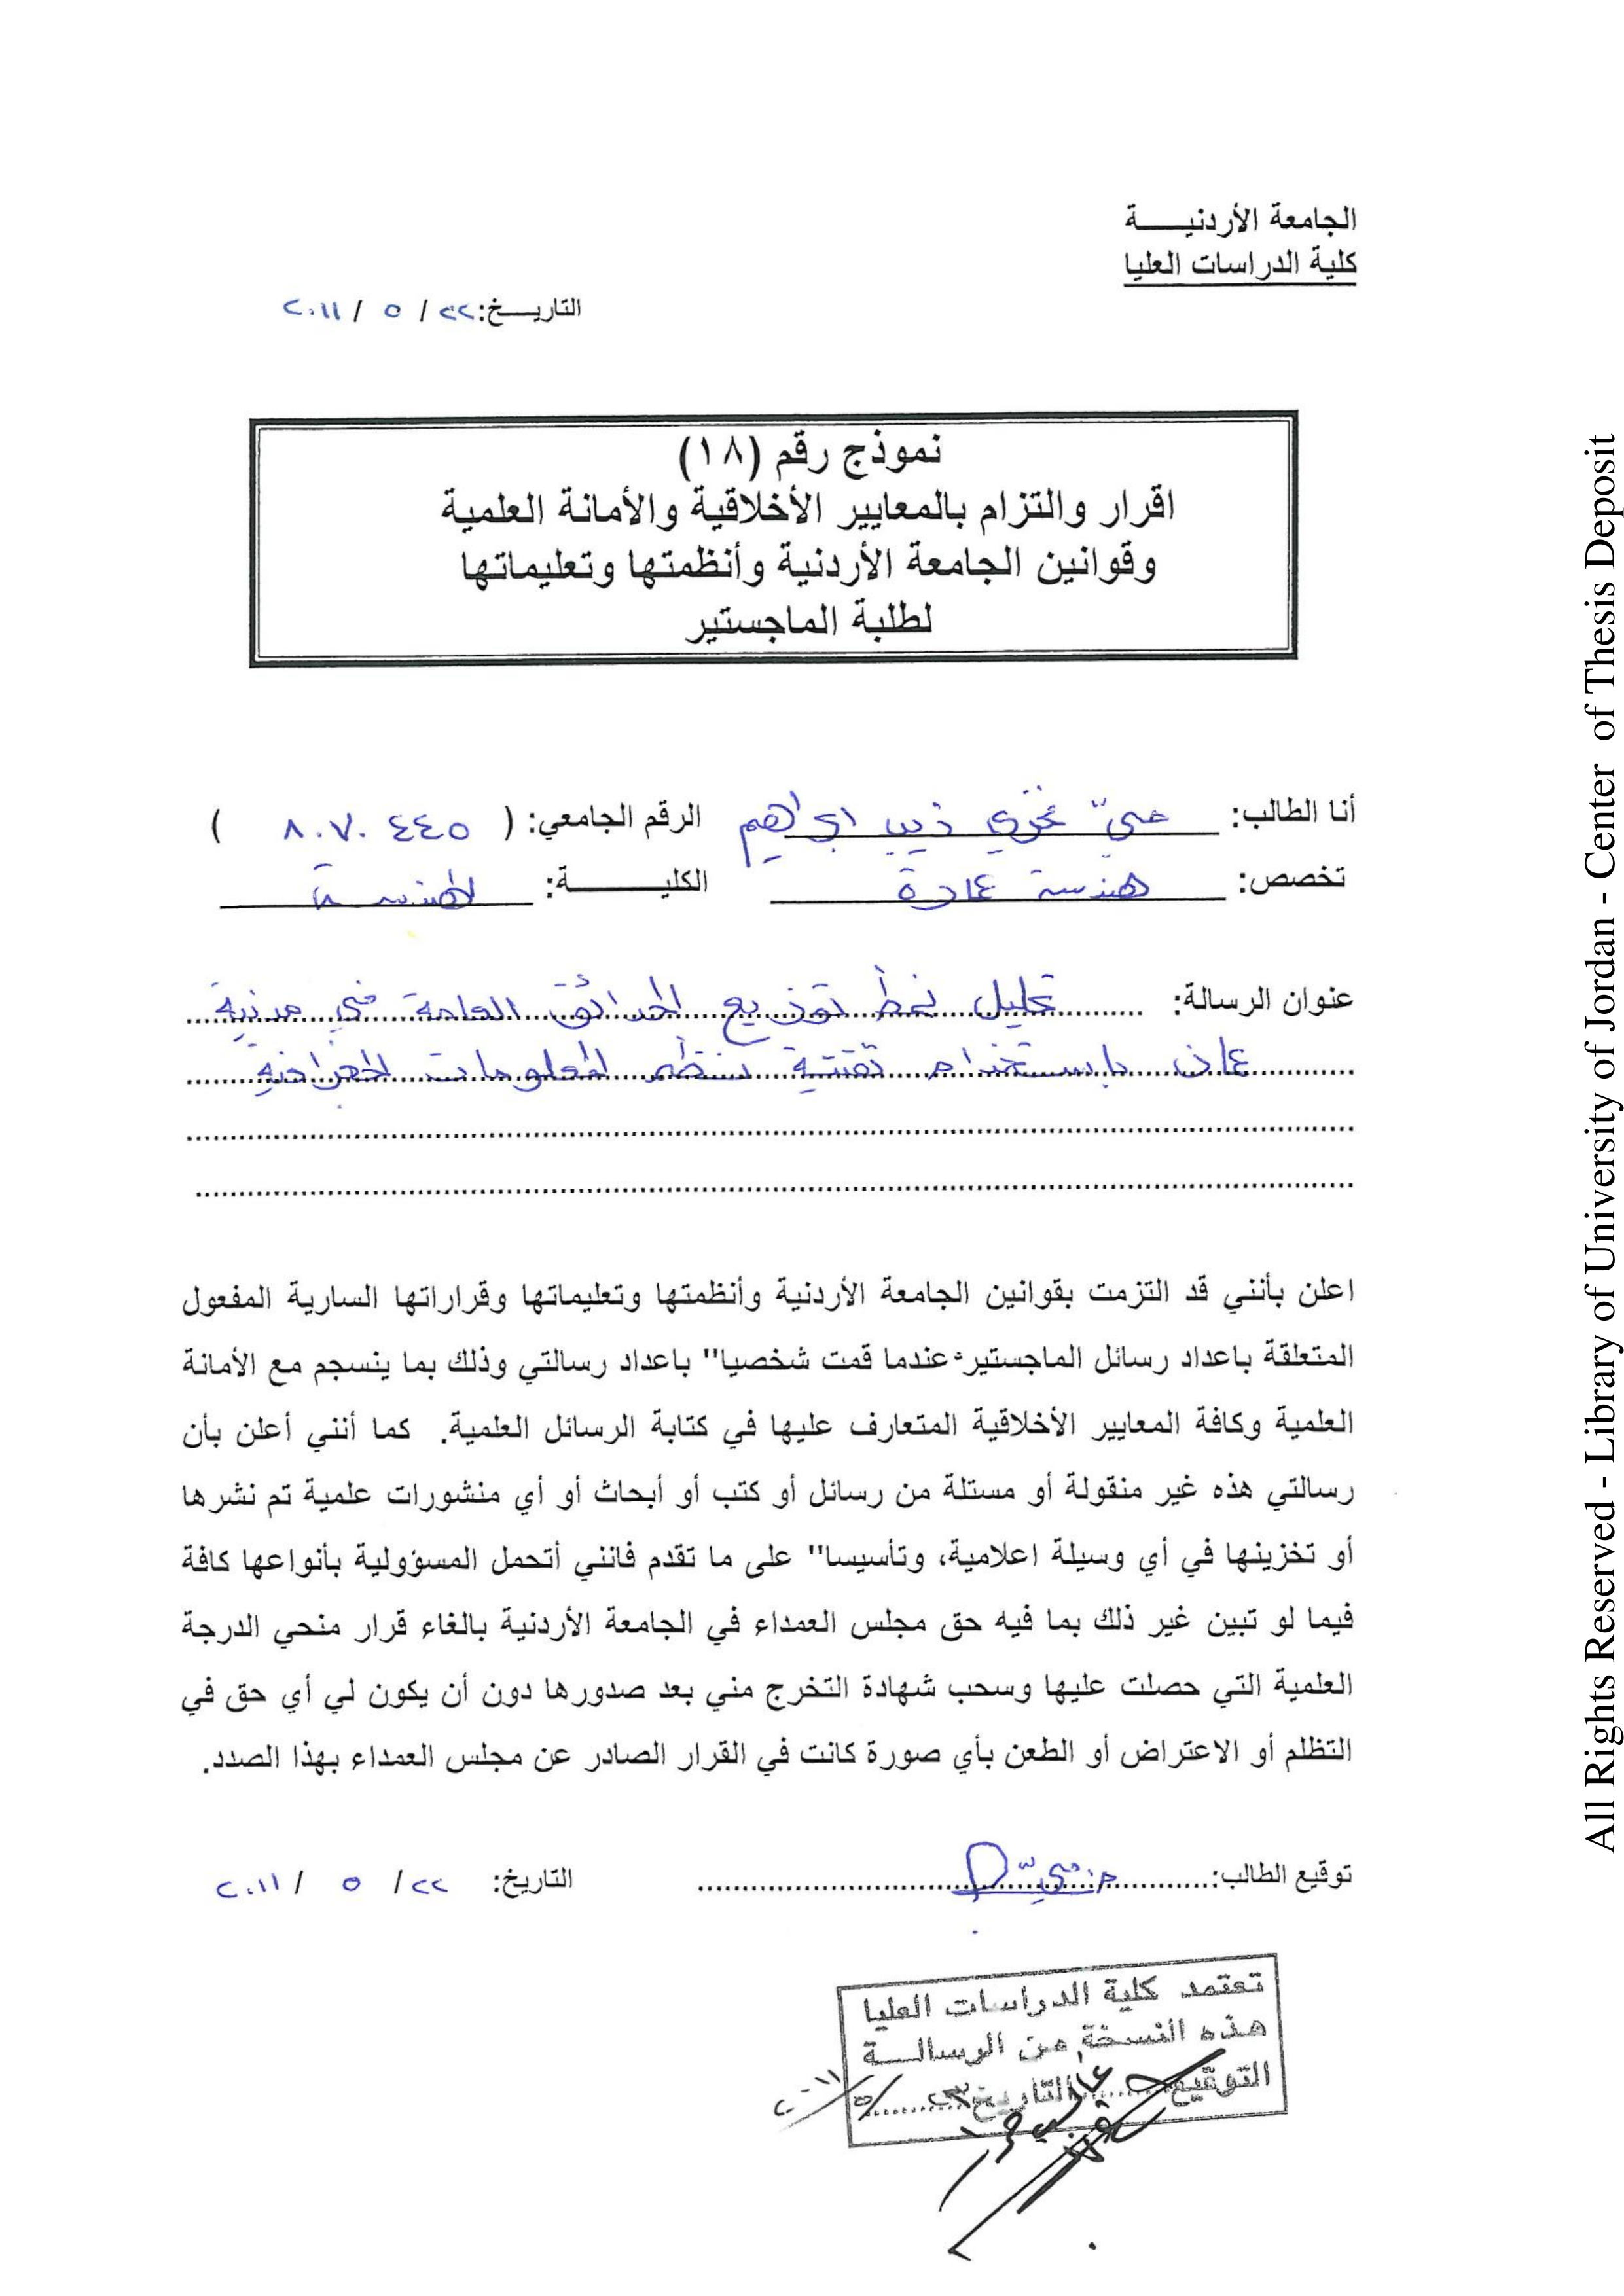 الجامعة الأردنيـــــة
كلية الدراسات العليا
التاريـــخ: ٢٢ / ٥ / ٢٠١١
نموذج رقم (١٨)
اقرار والتزام بالمعايير الأخلاقية والأمانة العلمية
وقوانين الجامعة الأردنية وأنظمتها وتعليماتها
لطلبة الماجستير
أنا الطالب: ذيب ابراهيم الرقم الجامعي: ( ٨٠٧٠٤٤٥ )
تخصص: هندسة عمارة الكليـــــــة: الهندسة
عنوان الرسالة: تحليل نمط توزيع الحدائق العامة في مدينة
عمان باستخدام تقنية نظم المعلومات الجغرافية
اعلن بأنني قد التزمت بقوانين الجامعة الأردنية وأنظمتها وتعليماتها وقراراتها السارية المفعول
المتعلقة باعداد رسائل الماجستير عندما قمت شخصيا" باعداد رسالتي وذلك بما ينسجم مع الأمانة
العلمية وكافة المعايير الأخلاقية المتعارف عليها في كتابة الرسائل العلمية. كما أنني أعلن بأن
رسالتي هذه غير منقولة أو مستلة من رسائل أو كتب أو أبحاث أو أي منشورات علمية تم نشرها
أو تخزينها في أي وسيلة اعلامية، وتأسيسا" على ما تقدم فانني أتحمل المسؤولية بأنواعها كافة
فيما لو تبين غير ذلك بما فيه حق مجلس العمداء في الجامعة الأردنية بالغاء قرار منحي الدرجة
العلمية التي حصلت عليها وسحب شهادة التخرج مني بعد صدورها دون أن يكون لي أي حق في
التظلم أو الاعتراض أو الطعن بأي صورة كانت في القرار الصادر عن مجلس العمداء بهذا الصدد.
توقيع الطالب: التاريخ: ٢٢ / ٥ / ٢٠١١
تعتمد كلية الدراسات العليا
هذه النسخة من الرسالـــة
التوقيع التاريخ
All Rights Reserved - Library of University of Jordan - Center of Thesis Deposit